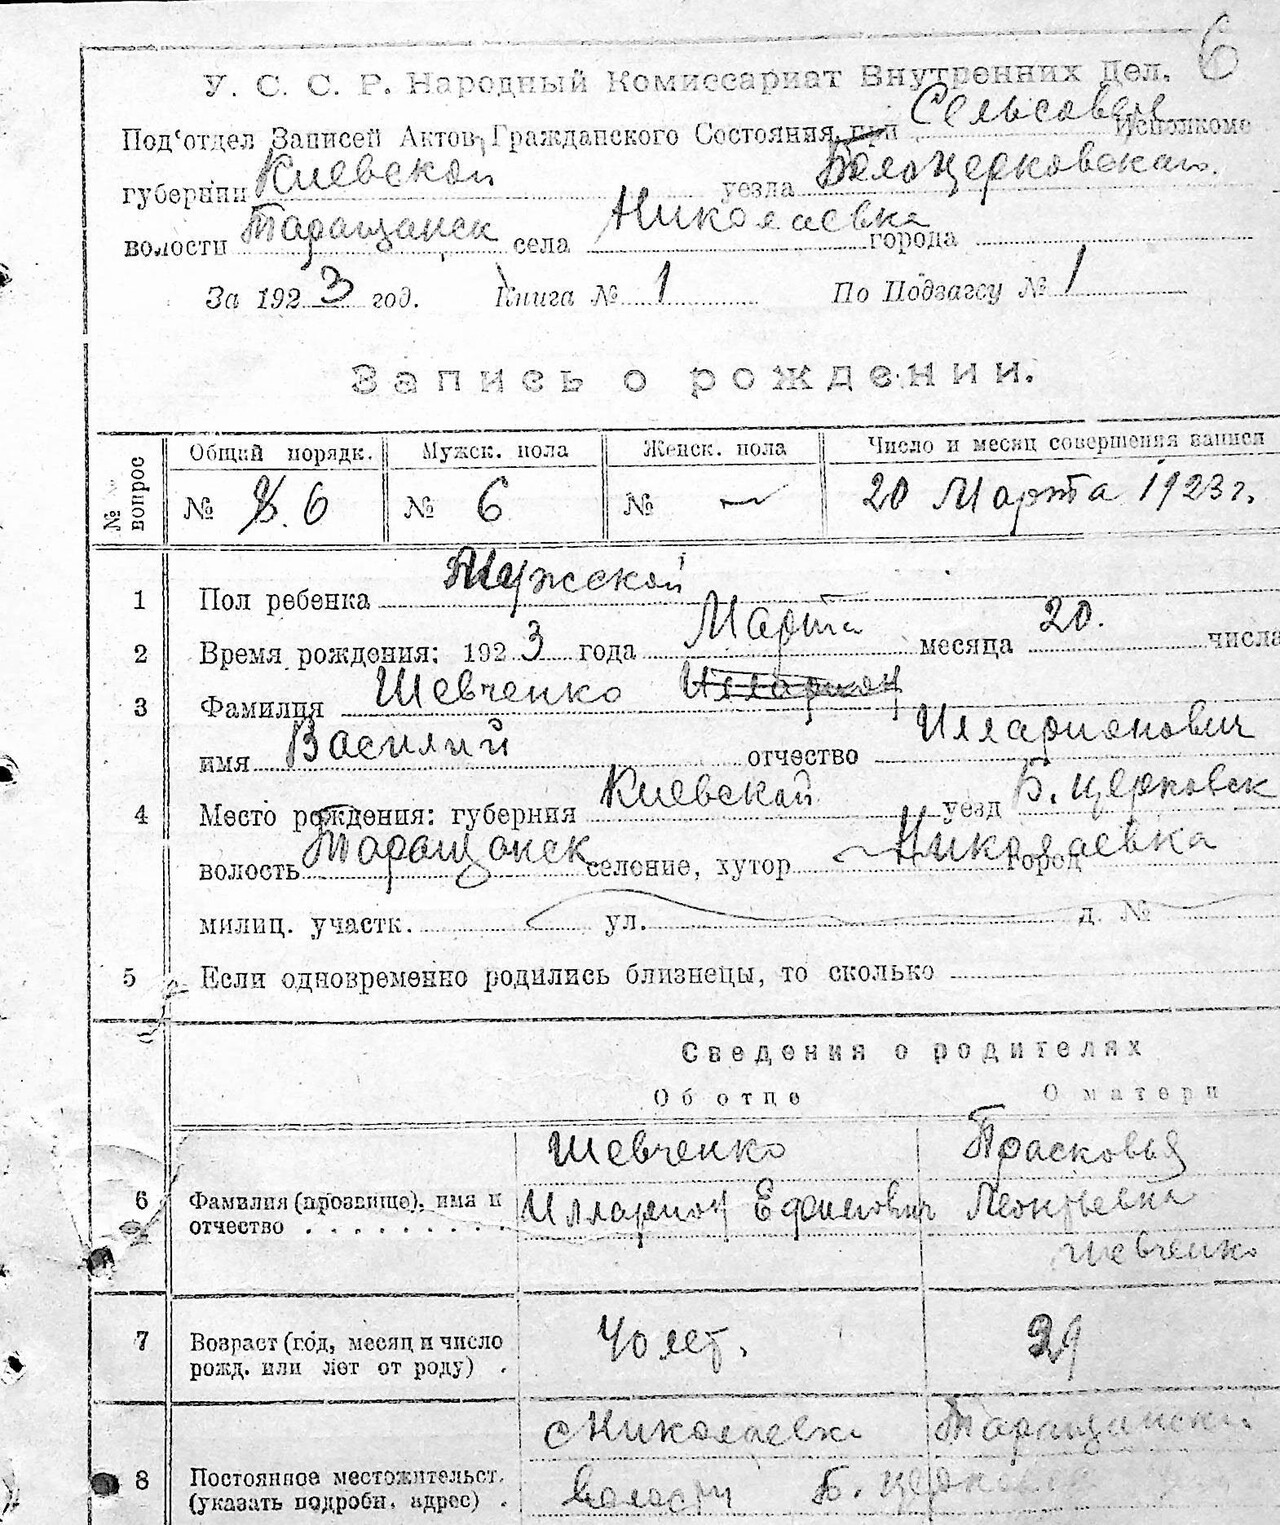 6
У. С. С. Р. Народный Комиссариат Внутренних Дел.
Под'отдел Записей Актов Гражданского Состояния при Сельсовете Исполкоме
губернии Киевской уезда Белоцерковской.
волости Таращанск села Николаевка города
За 1923 год. Книга № 1 По Подзагсу № 1
Запись о рождении.
№ № вопрос Общий порядк. Мужск. пола Женск. пола Число и месяц совершения записи
№ 8. 6 № 6 № — 20 Марта 1923 г.
1 Пол ребенка Мужской
2 Время рождения: 1923 года Марта месяца 20. числа
3 Фамилия Шевченко Илларион
имя Василий отчество Илларионович
4 Место рождения: губерния Киевской уезд Б. церковск
волость Таращанск селение, хутор Николаевка город
милиц. участк. ул. д. №
5 Если одновременно родились близнецы, то сколько
Сведения о родителях
Об отце О матери
Шевченко Прасковья
6 Фамилия (прозвище), имя и Илларион Ефимович Леонтьевна
отчество . . . . . . . . .
Шевченко
7 Возраст (год, месяц и число 40 лет. 39
рожд. или лет от роду) .
с Николаевки Таращанск.
8 Постоянное местожительст. волости Б. церковск
(указать подробн. адрес) .